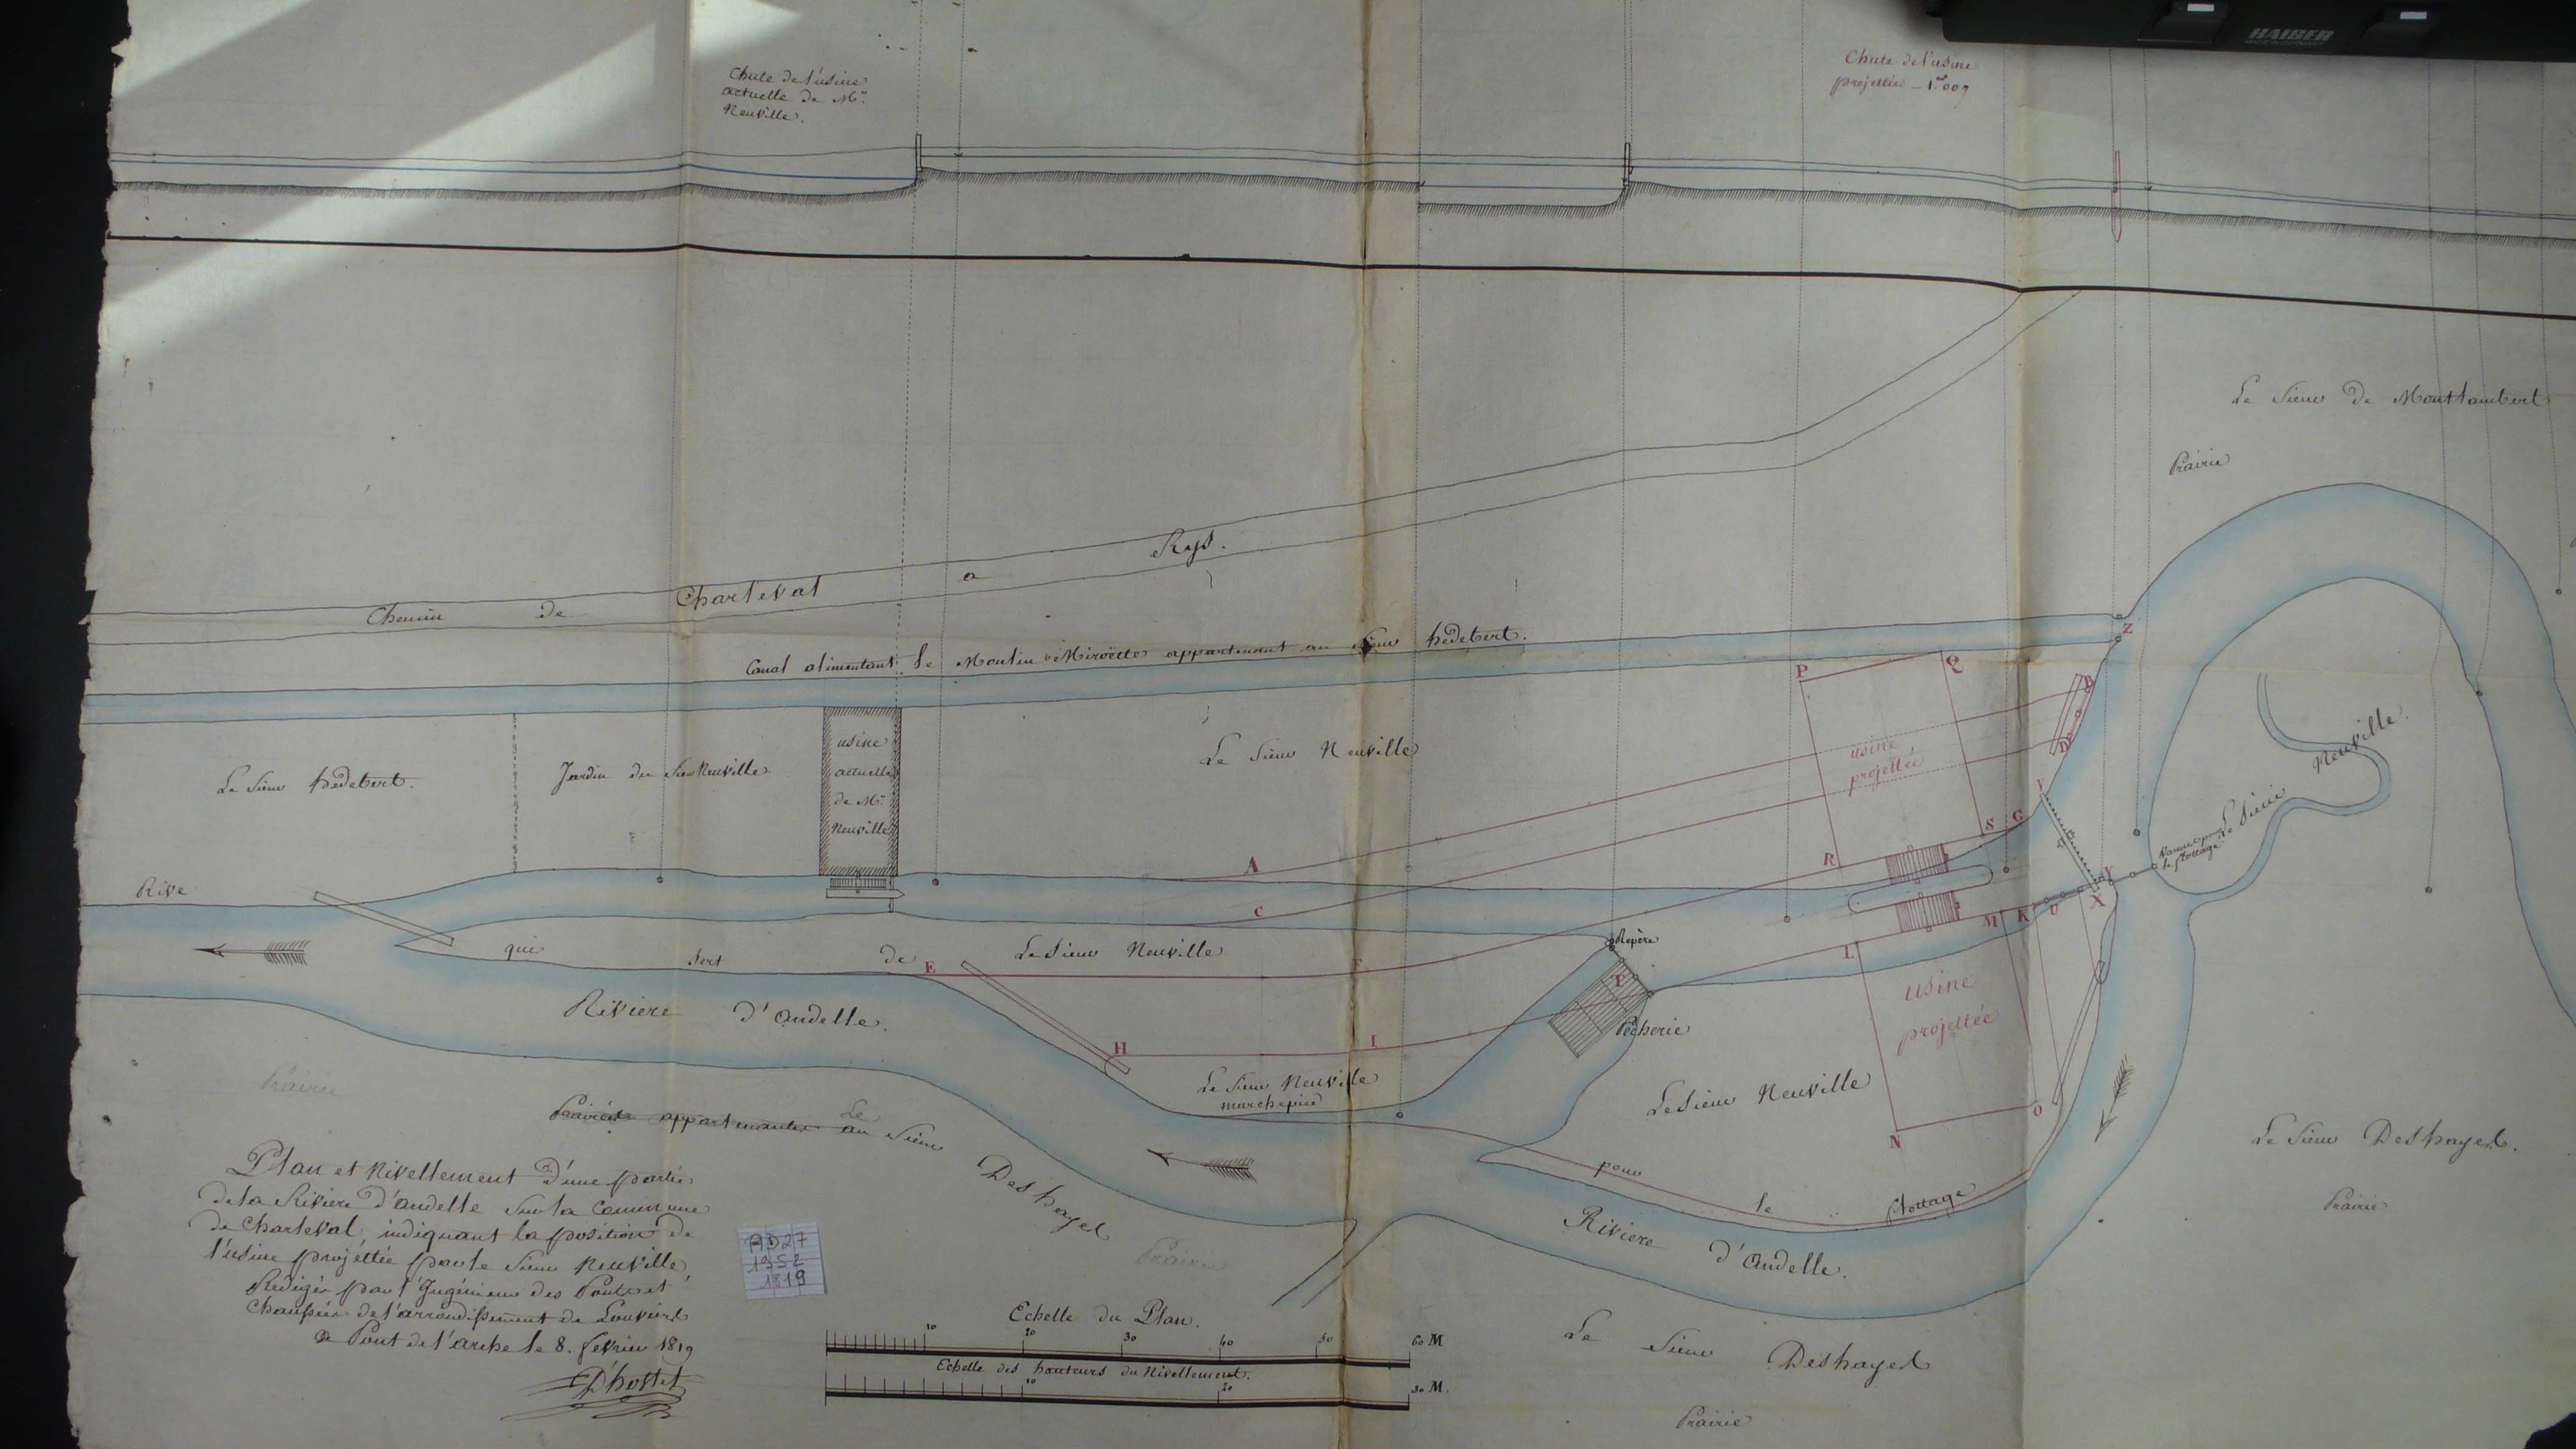 HAISER
Chute de l'usine
actuelle de Mr.
Neuville.
Chute de l'usine
projettée _ 1m 009
Le Sieur de Montlambert
Prairie
Chemin de Charleval a Rys.
Canal alimentant le Moulin Miroëtte appartenant au Sieur hédebert.
Z
P
Q
B
D
Le Sieur hédebert.
Jardin du Sieur Neuville
usine
actuelle
de Mr.
Neuville
Le Sieur Neuville
usine
projettée
V
Le Sieur Neuville.
Vannes pour
le flottage
A
C
R
S
G
Y
X
U
K
M
L
Rive qui sert de
Le Sieur Neuville
E
F
Repère
Pêcherie
H
I
Rivière d'Andelle.
Le Sieur Neuville
marchepied
Le Sieur Neuville
usine
projettée
N
O
pour le flottage
Prairie
Prairies appartenantes au
Le Sieur Deshayes
Prairie
Rivière d'Andelle.
Le Sieur Deshayes.
Prairie
Le Sieur Deshayes
Prairie
Plan et Nivellement d'une partie
de la Rivière d'andelle sur la Commune
de Charleval, indiquant la position de
l'usine projéttée par le Sieur Neuville
Rédigés par l'Ingénieur des Ponts et
Chaussées de l'arrondissement de Louviers
a Pont de l'arche le 8. fevrier 1819
D'hostel
AD27
1952
1819
Echelle du Plan.
10 20 30 40 50 60 M
Echelle des hauteurs du Nivellement.
10 20 30 M.